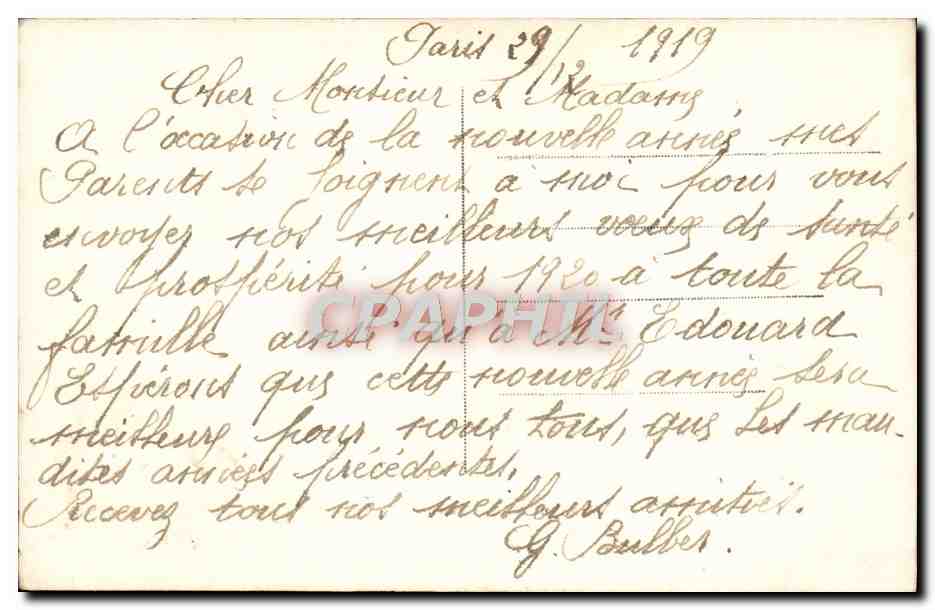 Paris 29/12 1919
Cher Monsieur et Madame
A l'occasion de la nouvelle année mes
Parents se joignent à moi pour vous
envoyer nos meilleurs vœux de santé
et prospérité pour 1920 à toute la
famille ainsi qu'à Mr Edouard
Espérons que cette nouvelle année sera
meilleure pour nous tous, que les mau-
dites années précédentes.
Recevez tous nos meilleurs amitiés.
G. Bulber.
CPAPHIL